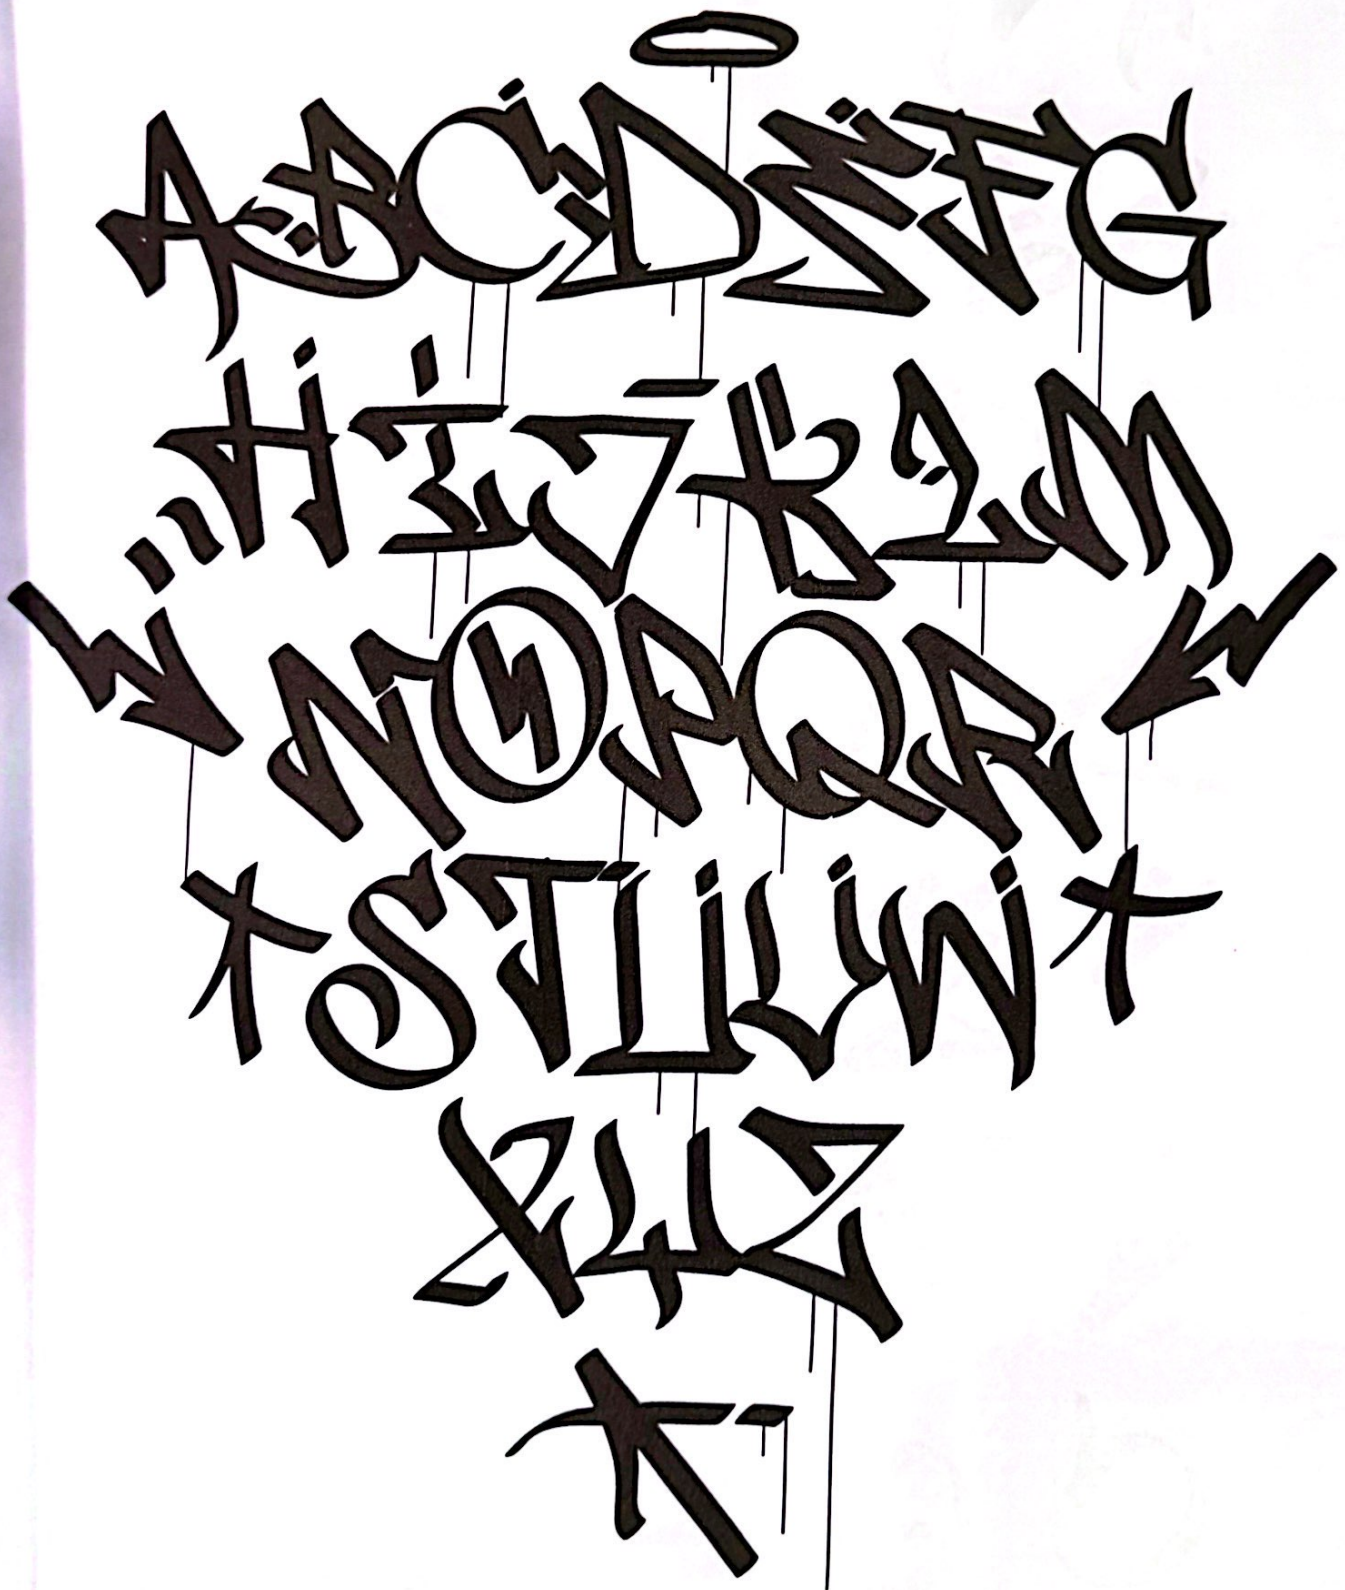 ABCDEFG
HIJKLM
NOPQR
STUVW
XYZ